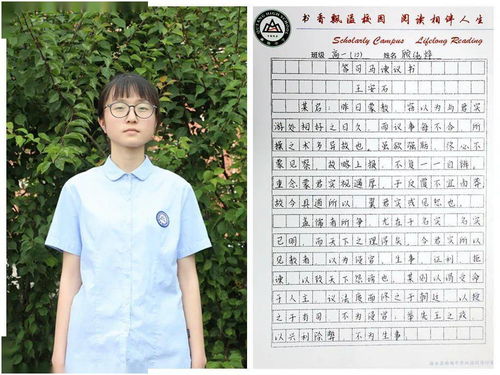 书香飘溢校园 阅读相伴人生
Scholarly Campus Lifelong Reading
班级 高一(12) 姓名
答司马谏议书
王安石
某启：昨日蒙教，窃以为与君实
游处相好之日久，而议事每不合，所
操之术多异故也。虽欲强聒，终必不
蒙见察，故略上报，不复一一自辨。
重念蒙君实视遇厚，于反覆不宜卤莽，
故今具道所以，冀君实或见恕也。
盖儒者所争，尤在于名实，名实
已明，而天下之理得矣。今君实所以
见教者，以为侵官、生事、征利、拒
谏，以致天下怨谤也。某则以谓受命
于人主，议法度而修之于朝廷，以授
之于有司，不为侵官；举先王之政，
以兴利除弊，不为生事；